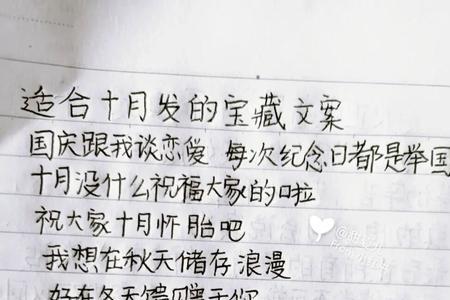 适合十月发的宝藏文案
国庆跟我谈恋爱 每次纪念日都是举国
十月没什么祝福大家的啦
祝大家十月怀胎吧
我想在秋天储存浪漫
好在冬天馈赠于你